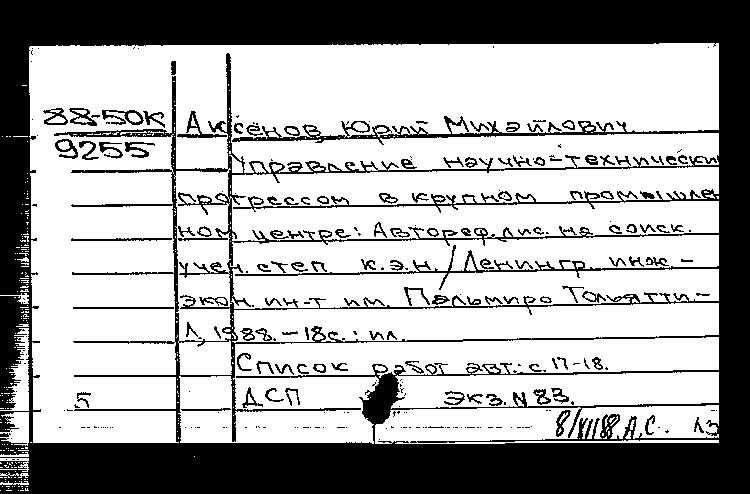 88-50К
9255
Аксенов, Юрий Михайлович.
Управление научно-технически
прогрессом в крупном промышлен
ном центре: Автореф. дис. на соиск.
учен. степ к.э.н. / Ленингр. инж.-
экон. ин-т им. Пальмиро Тольятти.-
Л, 1988. - 18с. : ил.
Список работ авт.: с. 17-18.
5 ДСП экз. N 83.
8/XII 88. А, С.